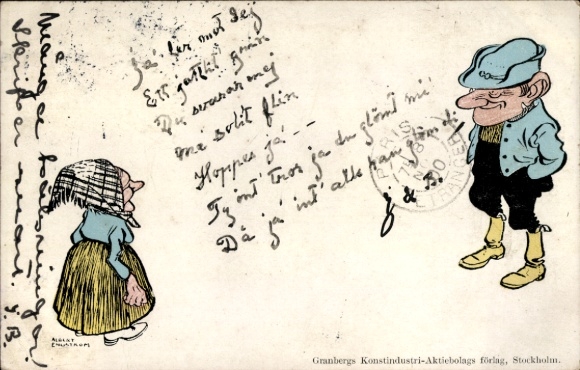 Ja' ler mot Dej
Ett gottit grin
Du svarar mej
me solit flin
Hoppes ja' —
Ty int' tror ja du glömt mi'
Då ja' int' alls kan glöm di'
J. B.
Många hälsningar
Skrifver snart. J. B.
PARIS
ETRANGER
ALBERT
ENGSTRÖM
Granbergs Konstindustri-Aktiebolags förlag, Stockholm.